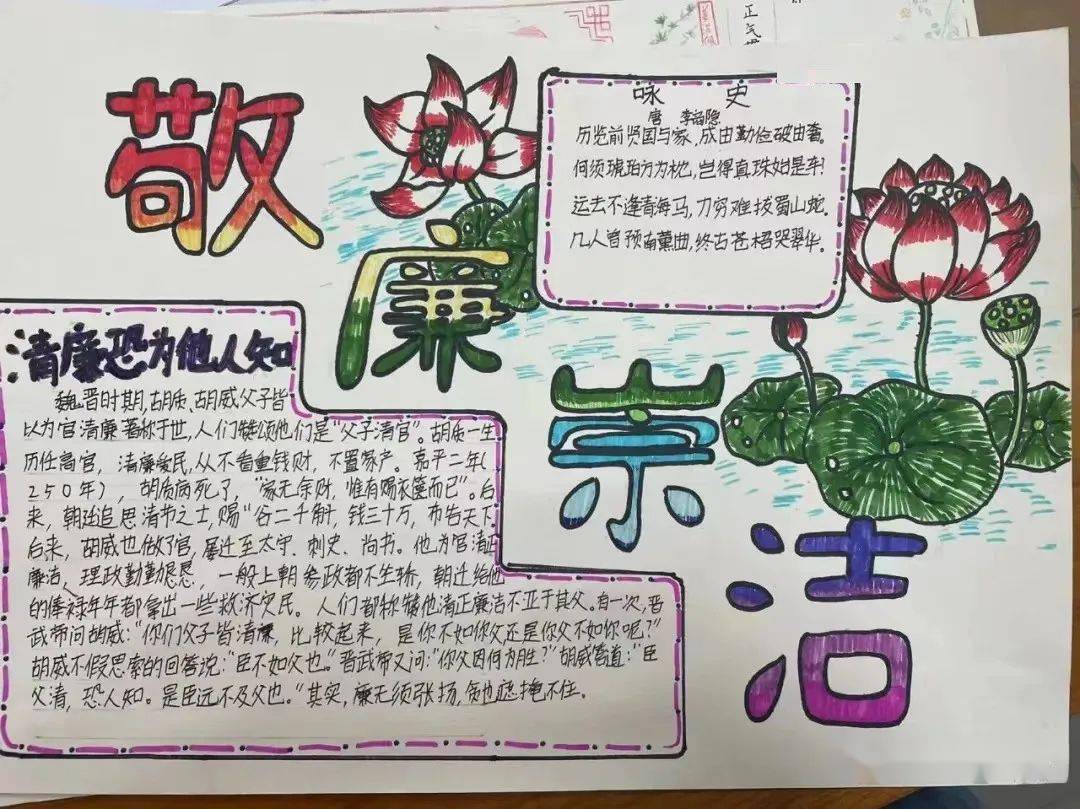 正气
敬
廉
崇
洁
咏 史
唐 李商隐
历览前贤国与家,成由勤俭破由奢。
何须琥珀方为枕,岂得真珠始是车!
远去不逢青海马,力穷难拔蜀山蛇。
几人曾预南薰曲,终古苍梧哭翠华。
清廉恐为他人知
魏晋时期,胡质、胡威父子皆
以为官清廉著称于世,人们赞颂他们是“父子清官”。胡质一生
历任高官, 清廉爱民,从不看重钱财, 不置家产。嘉平二年(
250年), 胡质病死了,“家无余财,惟有赐衣箧而已”。后
来, 朝廷追思清节之士,赐“谷二千斛, 钱三十万, 布告天下
后来, 胡威也做了官,屡迁至太守、刺史、尚书。他为官清正
廉洁, 理政勤勤恳恳, 一般上朝参政都不坐轿, 朝廷给他
的俸禄年年都拿出一些救济灾民。人们都称赞他清正廉洁不亚于其父。有一次,晋
武帝问胡威:“你们父子皆清廉, 比较起来, 是你不如你父还是你父不如你呢?”
胡威不假思索的回答说:“臣不如父也。”晋武帝又问:“你父因何为胜?”胡威答道:“臣
父清, 恐人知。是臣远不及父也。”其实, 廉无须张扬,贪也遮掩不住。